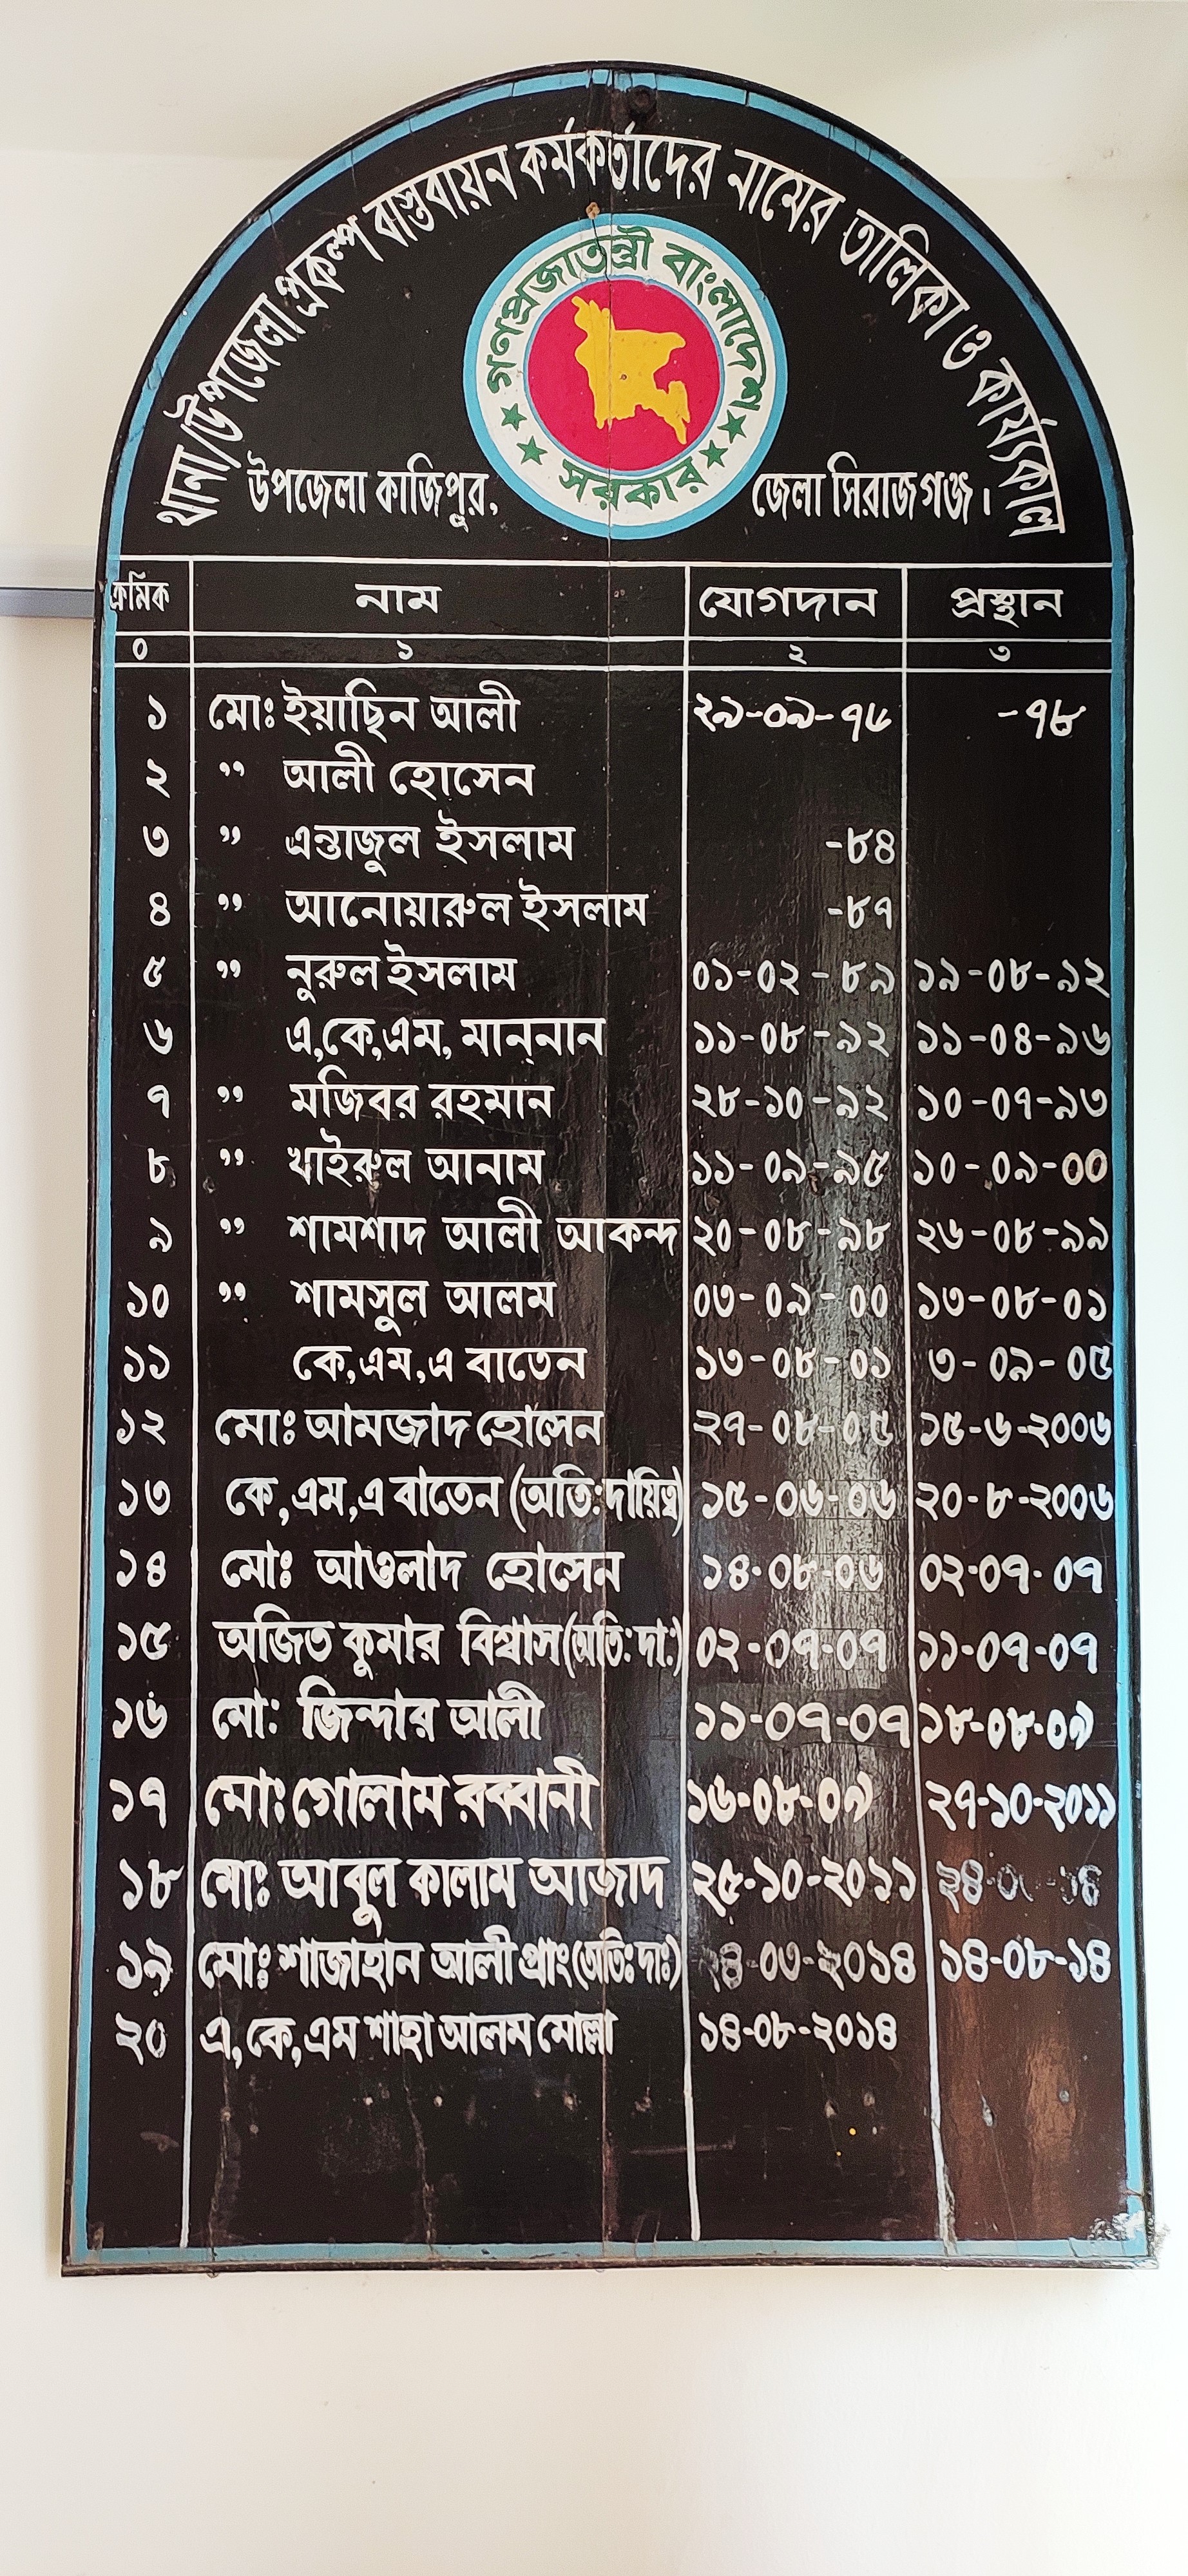 থানা/উপজেলা প্রকল্প বাস্তবায়ন কর্মকর্তাদের নামের তালিকা ও কার্য্যকাল
গণপ্রজাতন্ত্রী বাংলাদেশ
সরকার
উপজেলা কাজিপুর, জেলা সিরাজগঞ্জ।
ক্রমিক নাম যোগদান প্রস্থান
০ ১ ২ ৩
১ মোঃ ইয়াছিন আলী ২৯-০৯-৭৬ -৭৮
২ " আলী হোসেন
৩ " এন্তাজুল ইসলাম -৮৪
৪ " আনোয়ারুল ইসলাম -৮৭
৫ " নুরুল ইসলাম ০১-০২-৮৯ ১৯-০৮-৯২
৬ এ,কে,এম, মান্‌নান ১১-০৮-৯২ ১১-০৪-৯৬
৭ " মজিবর রহমান ২৮-১০-৯২ ১০-০৭-৯৩
৮ " খাইরুল আনাম ১১-০৯-৯৫ ১০-০৯-০০
৯ " শামশাদ আলী আকন্দ ২০-০৮-৯৮ ২৬-০৮-৯৯
১০ " শামসুল আলম ০৩-০৯-০০ ১৩-০৮-০১
১১ কে,এম,এ বাতেন ১৩-০৮-০১ ৩-০৯-০৫
১২ মোঃ আমজাদ হোসেন ২৭-০৮-০৫ ১৫-৬-২০০৬
১৩ কে,এম,এ বাতেন (অতি:দায়িত্ব) ১৫-০৬-০৬ ২০-৮-২০০৬
১৪ মোঃ আওলাদ হোসেন ১৪-০৮-০৬ ০২-০৭-০৭
১৫ অজিত কুমার বিশ্বাস(অতি:দা:) ০২-০৭-০৭ ১১-০৭-০৭
১৬ মো: জিন্দার আলী ১১-০৭-০৭ ১৮-০৮-০৯
১৭ মো:গোলাম রব্বানী ১৬-০৮-০৯ ২৭-১০-২০১১
১৮ মোঃ আবুল কালাম আজাদ ২৫-১০-২০১১
১৯ মোঃ শাজাহান আলী প্রাং(অতিঃদাঃ) ২৪-০৩-২০১৪ ১৪-০৮-১৪
২০ এ,কে,এম শাহা আলম মোল্লা ১৪-০৮-২০১৪